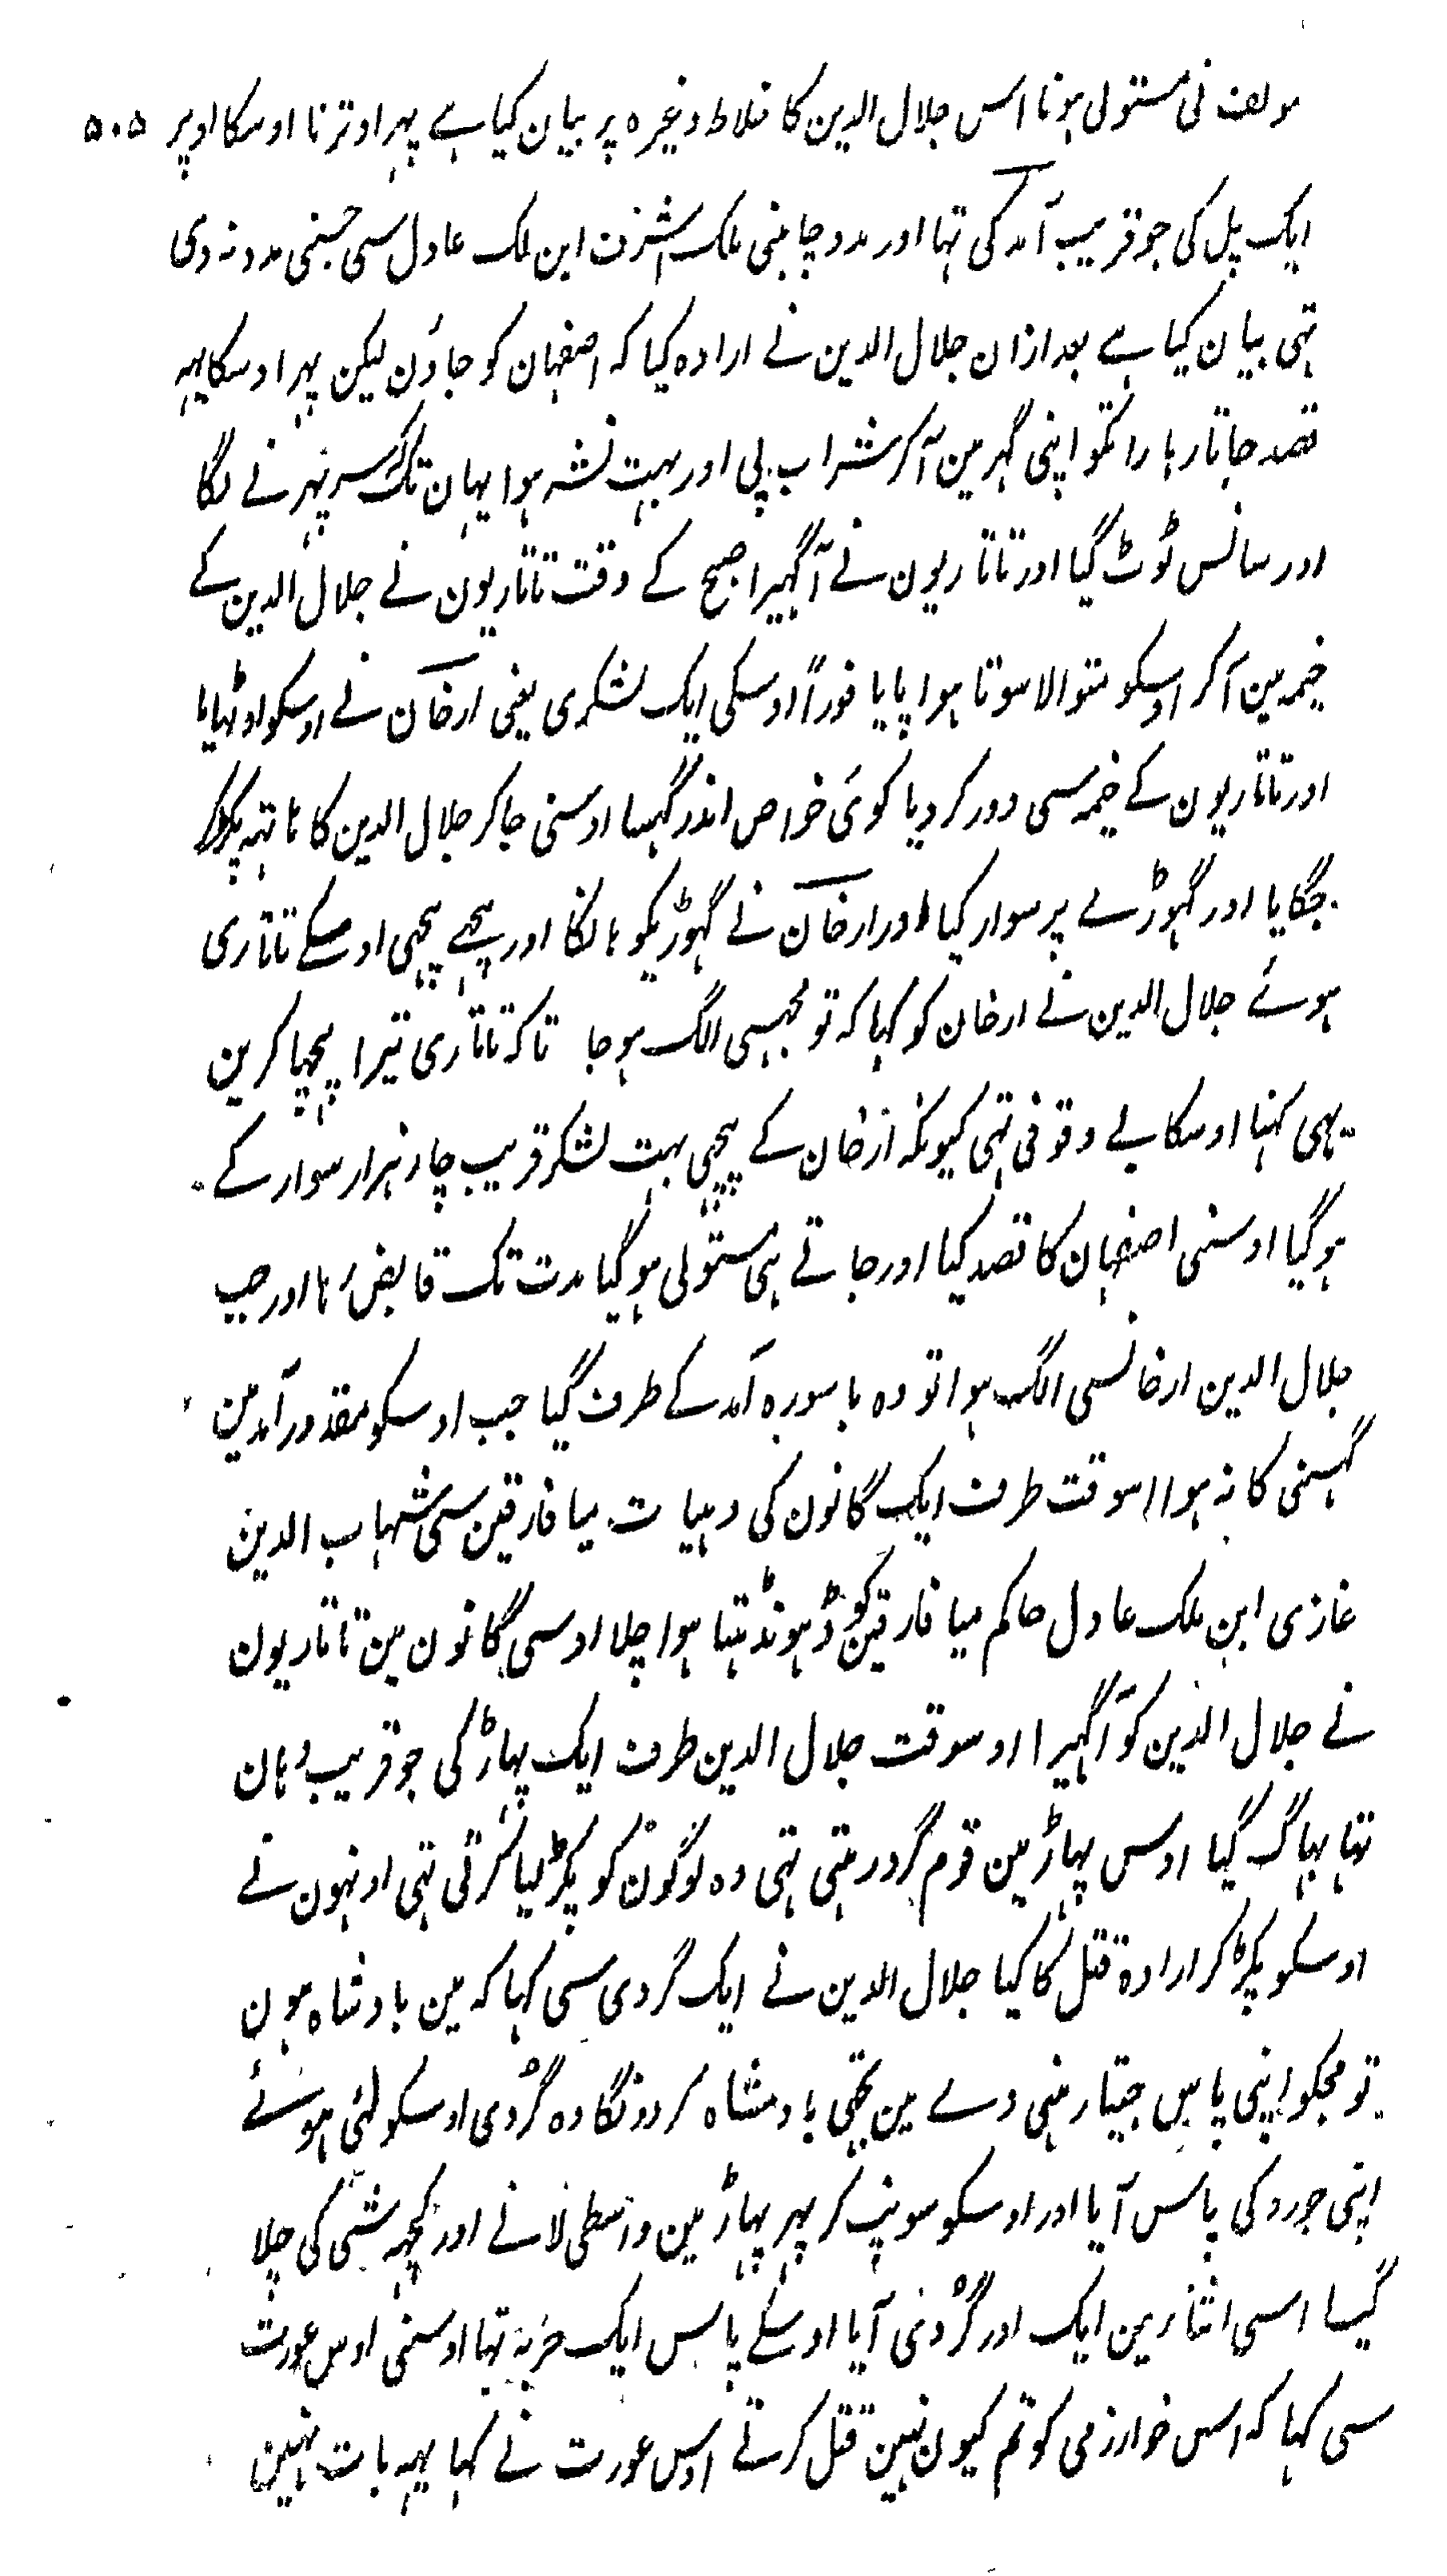 مولف نی مستولی ہونا اس جلال الدین کا خلاط وغیرہ پر بیان کیا ہے پہر اوترنا اوسکا اوپر ۵۰۵
ایک پل کی جو قریب آمد کی تہا اور مدد چاہنی ملک اشرف ابن ملک عادل سی جسنی مدد نہ دی
تہی بیان کیا ہے بعد ازان جلال الدین نے ارادہ کیا کہ اصفہان کو جاؤن لیکن پہر اوسکا یہہ
قصد جاتا رہا راتکو اپنی گہر مین آکر شراب پی اور بہت نشہ ہوا یہان تک سر پہرنے لگا
اور سانس ٹوٹ گیا اور تاتاریون نے آگہیرا صبح کے وقت تاتاریون نے جلال الدین کے
خیمہ مین آکر اوسکو متوالا سوتا ہوا پایا فوراً اوسکی ایک لشکری یعنی ارخان نے اوسکو اوٹہایا
اور تاتاریون کے خیمہ سی دور کر دیا کوئی خواص اندر گہسا اوسنی جا کر جلال الدین کا ہاتہہ پکڑ کر
جگایا اور گہوڑے پر سوار کیا اور ارخان نے گہوڑیکو ہانکا اور پیچہے پیچہی اوسکے تاتاری
ہوئے جلال الدین نے ارخان کو کہا کہ تو مجہسی الگ ہو جا تاکہ تاتاری تیرا پیچہا کرین
یہی کہنا اوسکا بے وقوفی تہی کیونکہ ارخان کے پیچہی بہت لشکر قریب چار ہزار سوار کے
ہو گیا اوسنی اصفہان کا قصد کیا اور جاتے ہی مستولی ہو گیا مدت تک قابض رہا اور جب
جلال الدین ارخانسی الگ ہوا تو وہ باسورہ آمد کے طرف گیا جب اوسکو مقدور آمد مین
گہسنی کا نہ ہوا اسوقت طرف ایک گانون کی دہیات میا فارقین سی شہاب الدین
غازی ابن ملک عادل حاکم میا فارقین کو ڈہونڈہتا ہوا چلا اوسی گانون مین تاتاریون
نے جلال الدین کو آگہیرا اوسوقت جلال الدین طرف ایک پہاڑ کی جو قریب وہان
تہا بہاگ گیا اوس پہاڑ مین قوم گرد رہتی تہی وہ لوگون کو پکڑ لیا کرتی تہی اونہون نے
اوسکو پکڑ کر ارادہ قتل کا کیا جلال الدین نے ایک گردی سی کہا کہ مین بادشاہ ہون
تو مجکو اپنی پاس جیتا رہنی دے مین تجہی بادشاہ کردونگا وہ گردی اوسکو لئی ہوئے
اپنی جورو کی پاس آیا اور اوسکو سونپ کر پہر پہاڑ مین واسطی لانے اور کچہہ شئی کی چلا
گیا اسی اثنا مین ایک اور گردی آیا اوسکے پاس ایک حربہ تہا اوسنی اوس عورت
سی کہا کہ اس خوارزمی کو تم کیون نہین قتل کرتے اوس عورت نے کہا یہہ بات نہین